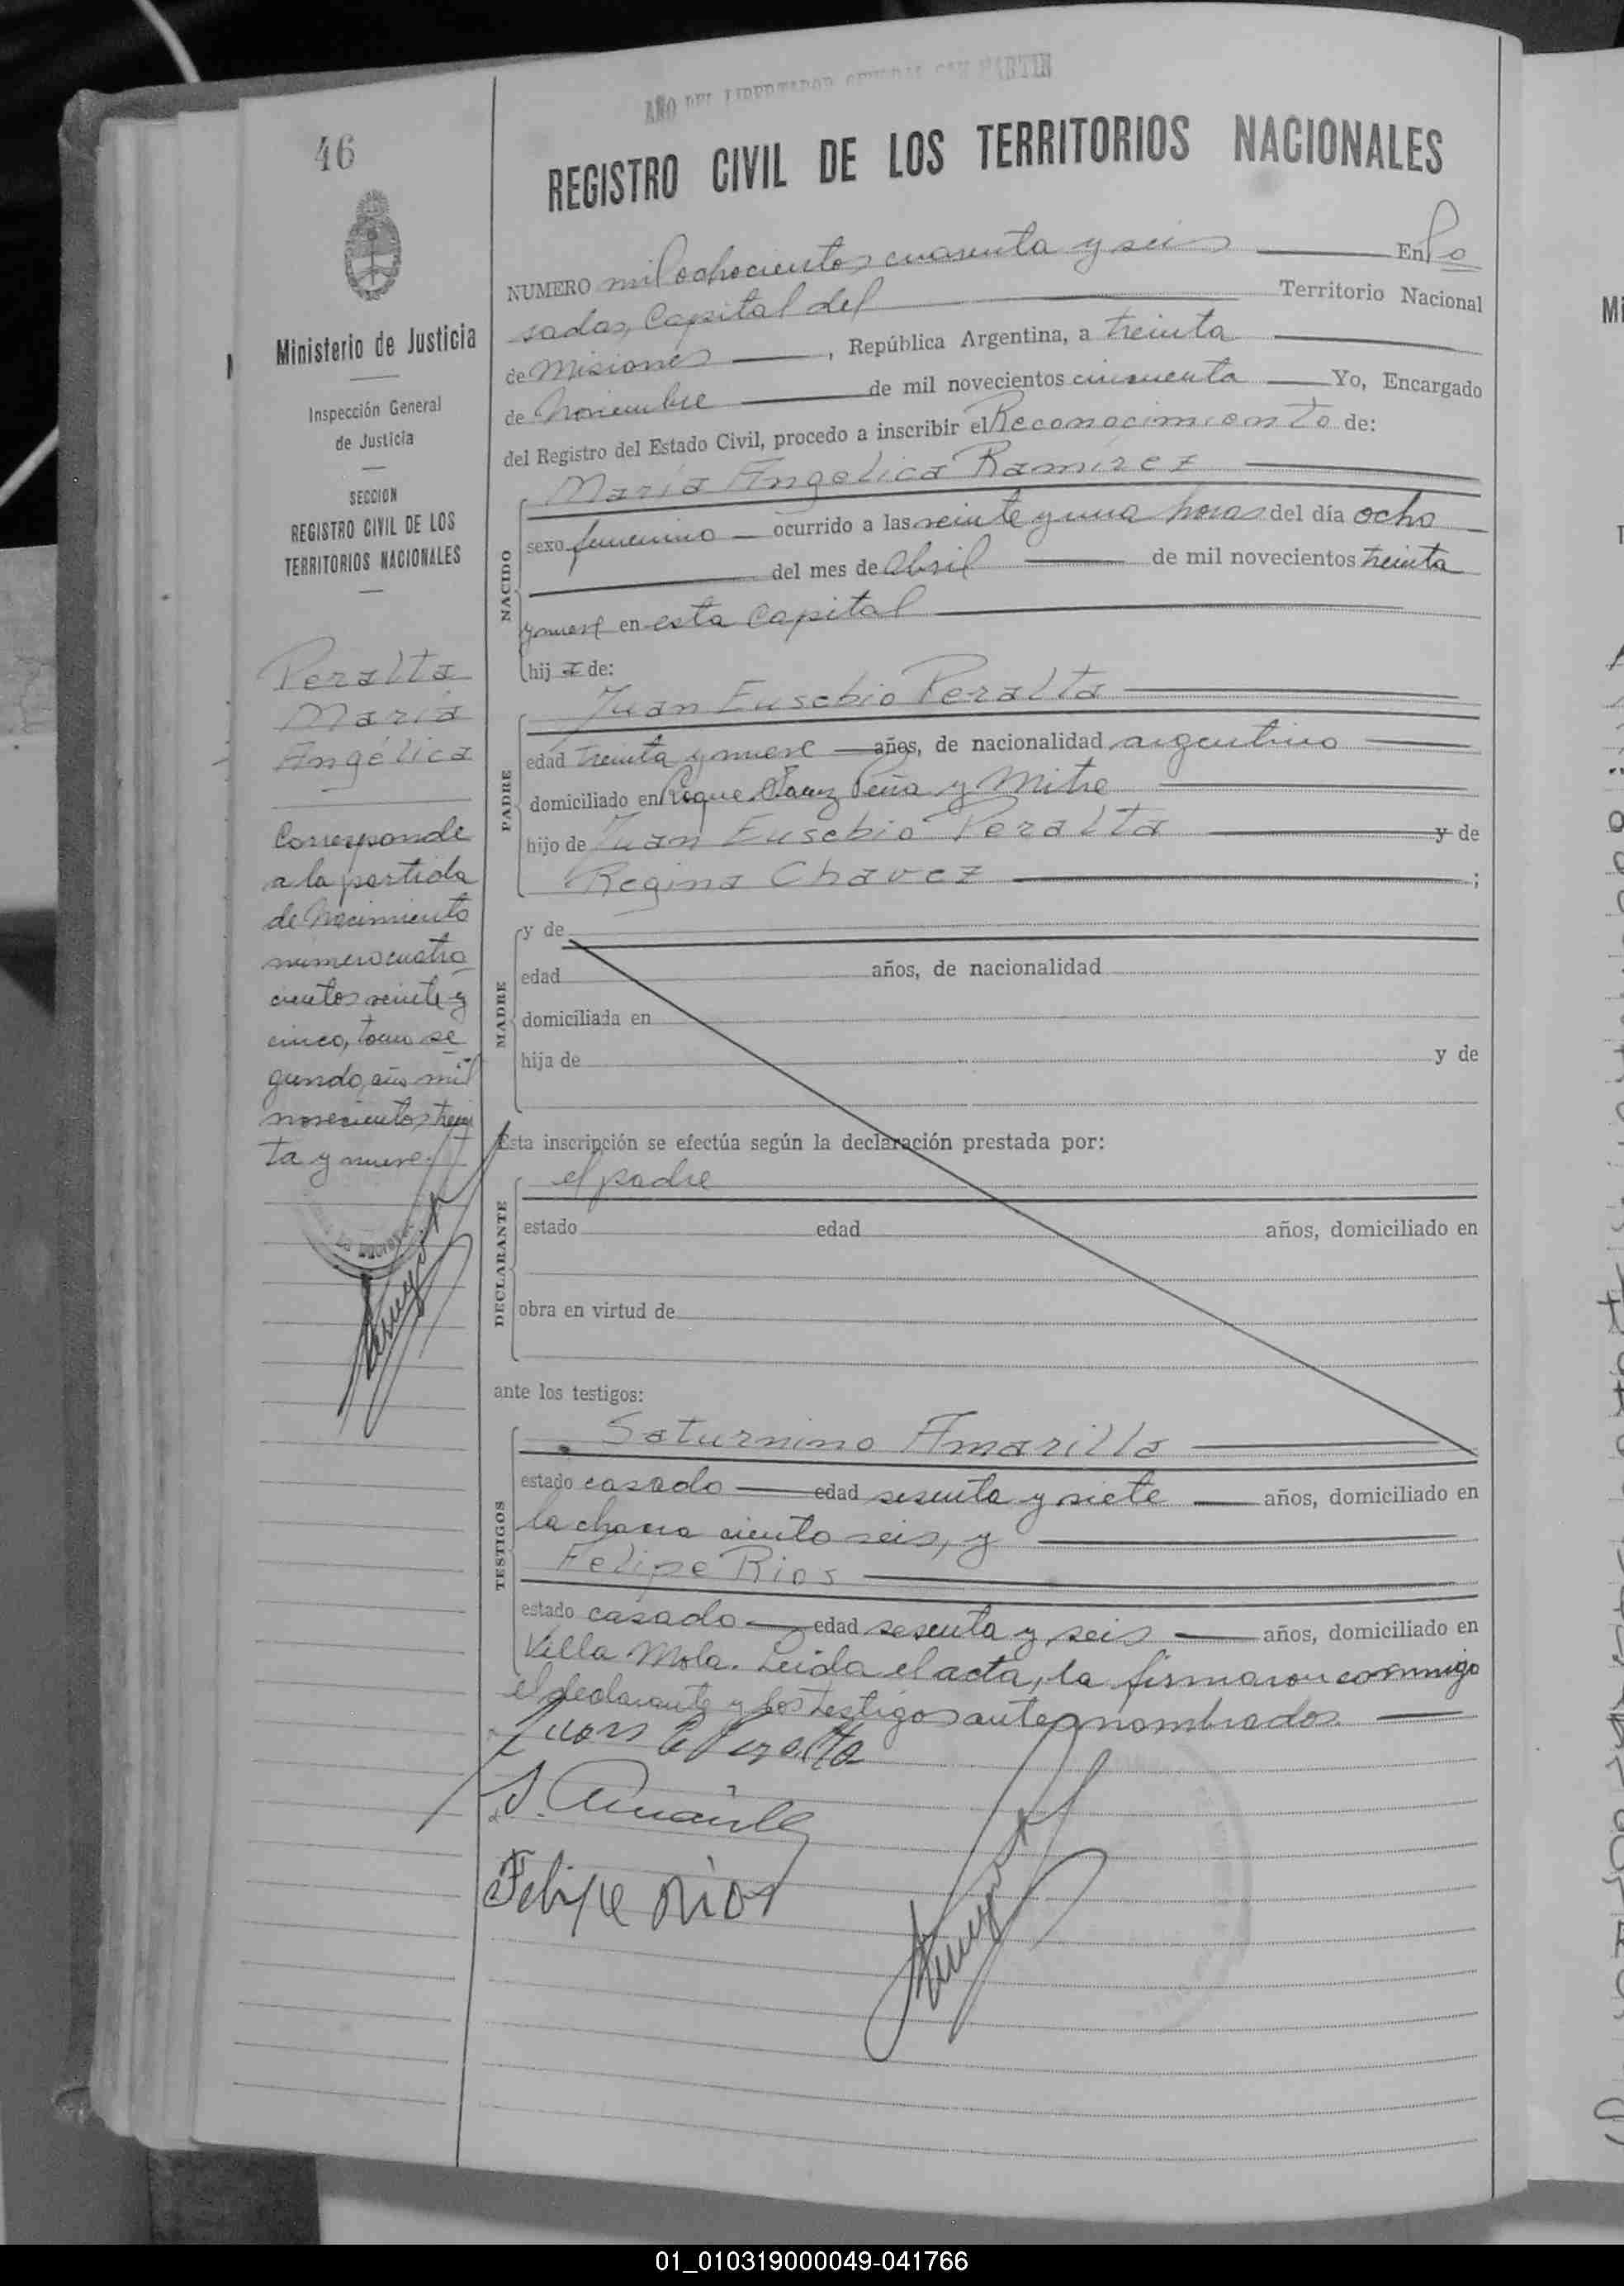 AÑO DEL LIBERTADOR GENERAL SAN MARTIN
46
REGISTRO CIVIL DE LOS TERRITORIOS NACIONALES
Ministerio de Justicia
Inspección General
de Justicia
SECCION
REGISTRO CIVIL DE LOS
TERRITORIOS NACIONALES
Peralta
Maria
Angélica
Corresponde
a la partida
de Nacimiento
numero cuatro
cientos veinte y
cinco, tomo se
gundo, año mil
novecientos trein
ta y nueve.
NUMERO mil ochocientos cuarenta y seis En Po
sadas, Capital del Territorio Nacional
de Misiones, República Argentina, a treinta
de Noviembre de mil novecientos cincuenta Yo, Encargado
del Registro del Estado Civil, procedo a inscribir el Reconocimiento de:
NACIDO
María Angelica Ramírez
sexo femenino ocurrido a las veinte y una horas del día ocho
del mes de Abril de mil novecientos treinta
y nueve en esta Capital
hija de:
PADRE
Juan Eusebio Peralta
edad treinta y nueve años, de nacionalidad argentino
domiciliado en Roque Saenz Peña y Mitre
hijo de Juan Eusebio Peralta y de
Regina Chavez ;
MADRE
y de
edad años, de nacionalidad
domiciliada en
hija de y de
Esta inscripción se efectúa según la declaración prestada por:
DECLARANTE
el padre
estado edad años, domiciliado en
obra en virtud de
ante los testigos:
TESTIGOS
Saturnino Amarilla
estado casado edad sesenta y siete años, domiciliado en
la chacra ciento seis, y
Felipe Rios
estado casado edad sesenta y seis años, domiciliado en
Villa Mola. Leida el acta, la firmaron conmigo
el declarante y los testigos antes nombrados.
Juan E Peralta
S. Amarilla
Felipe Rios
01_010319000049-041766